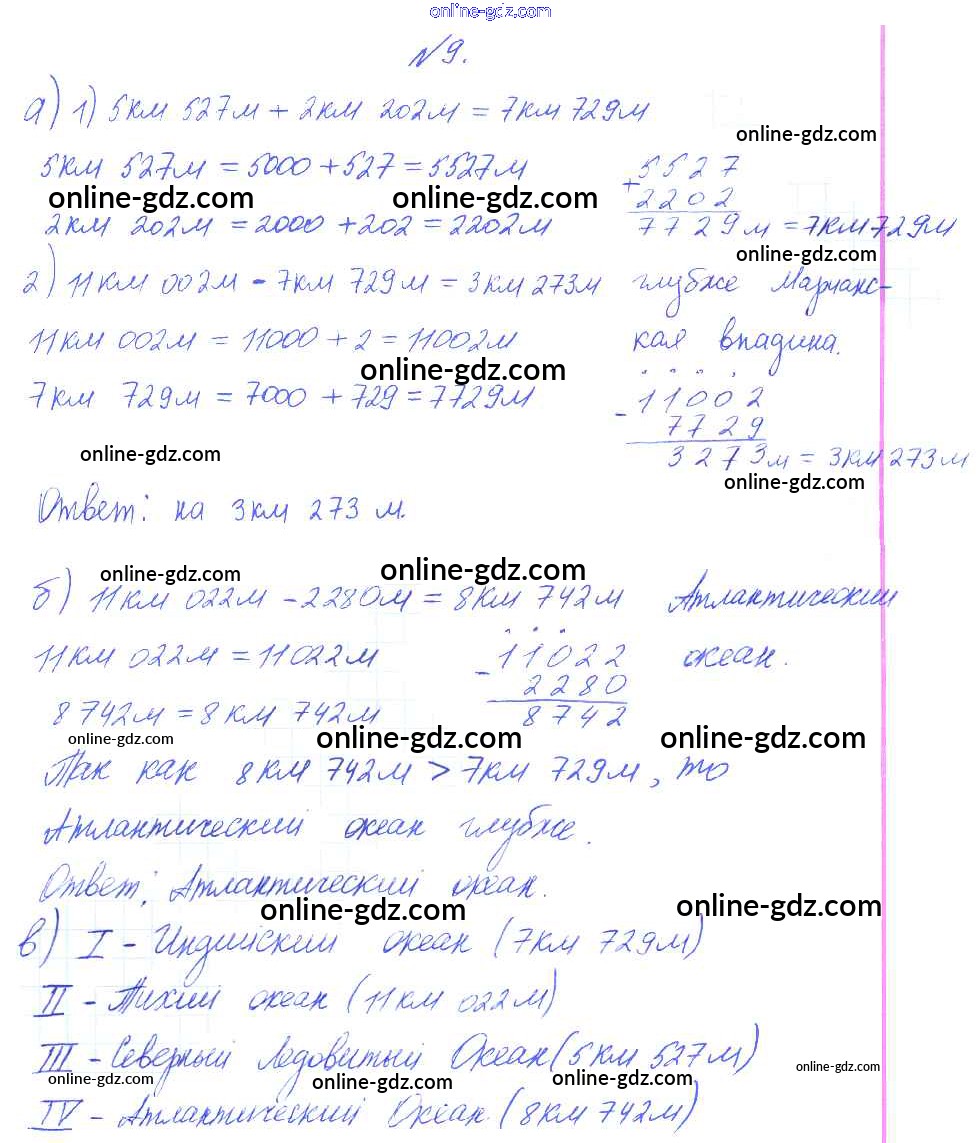 online-gdz.com
№9.
а) 1) 5км 527м + 2км 202м = 7км 729м
online-gdz.com
5км 527м = 5000 + 527 = 5527м
5527
online-gdz.com online-gdz.com
+ 2202
2км 202м = 2000 + 202 = 2202м
7729м = 7км 729м
online-gdz.com
2) 11км 002м - 7км 729м = 3км 273м глубже Марианс-
11км 002м = 11000 + 2 = 11002м кая впадина.
online-gdz.com
7км 729м = 7000 + 729 = 7729м
- 11002
7729
online-gdz.com
3273м = 3км 273м
online-gdz.com
Ответ: на 3км 273 м.
online-gdz.com online-gdz.com
б) 11км 022м - 2280м = 8км 742м Атлантический
11км 022м = 11022м
- 11022
океан.
2280
8742м = 8км 742м
8742
online-gdz.com online-gdz.com online-gdz.com
Так как 8км 742м > 7км 729м, то
Атлантический океан глубже.
Ответ: Атлантический океан.
online-gdz.com online-gdz.com
в) I - Индийский океан (7км 729м)
II - Тихий океан (11км 022м)
III - Северный Ледовитый Океан (5км 527м)
online-gdz.com online-gdz.com online-gdz.com online-gdz.com
IV - Атлантический Океан. (8км 742м)